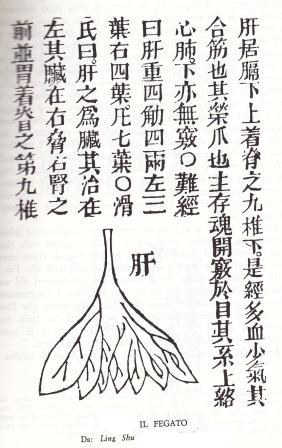 肝居膈下上着脊之九椎下。是經多血少氣其
合筋也其榮爪也主存魂開竅於目其系上絡
心肺。下亦無竅○難經
曰肝重四觔四兩左三
葉右四葉凢七葉○滑
氏曰肝之爲臟其治在
左其臟在右脅右腎之
前並胃着脊之第九椎
肝
IL FEGATO
Da: Ling Shu